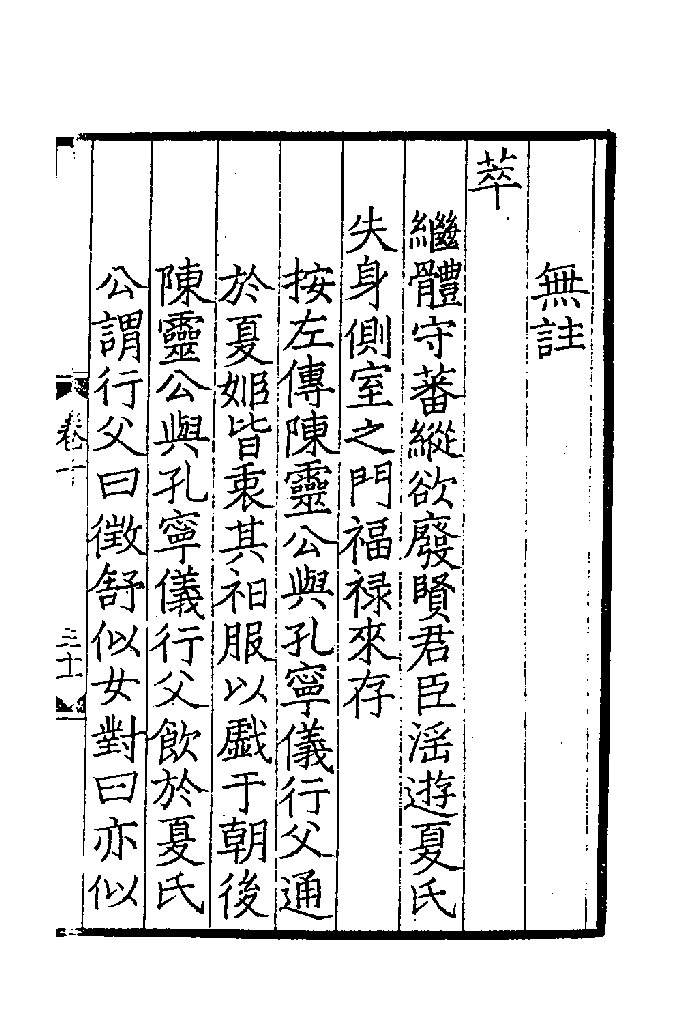 無註
萃
繼體守蕃縱欲廢賢君臣滛遊夏氏
失身側室之門福禄來存
按左傳陳靈公與孔寧儀行父通
於夏姬皆衷其衵服以戲于朝後
陳靈公與孔寧儀行父飲於夏氏
公謂行父曰徵舒似女對曰亦似
卷十
三十